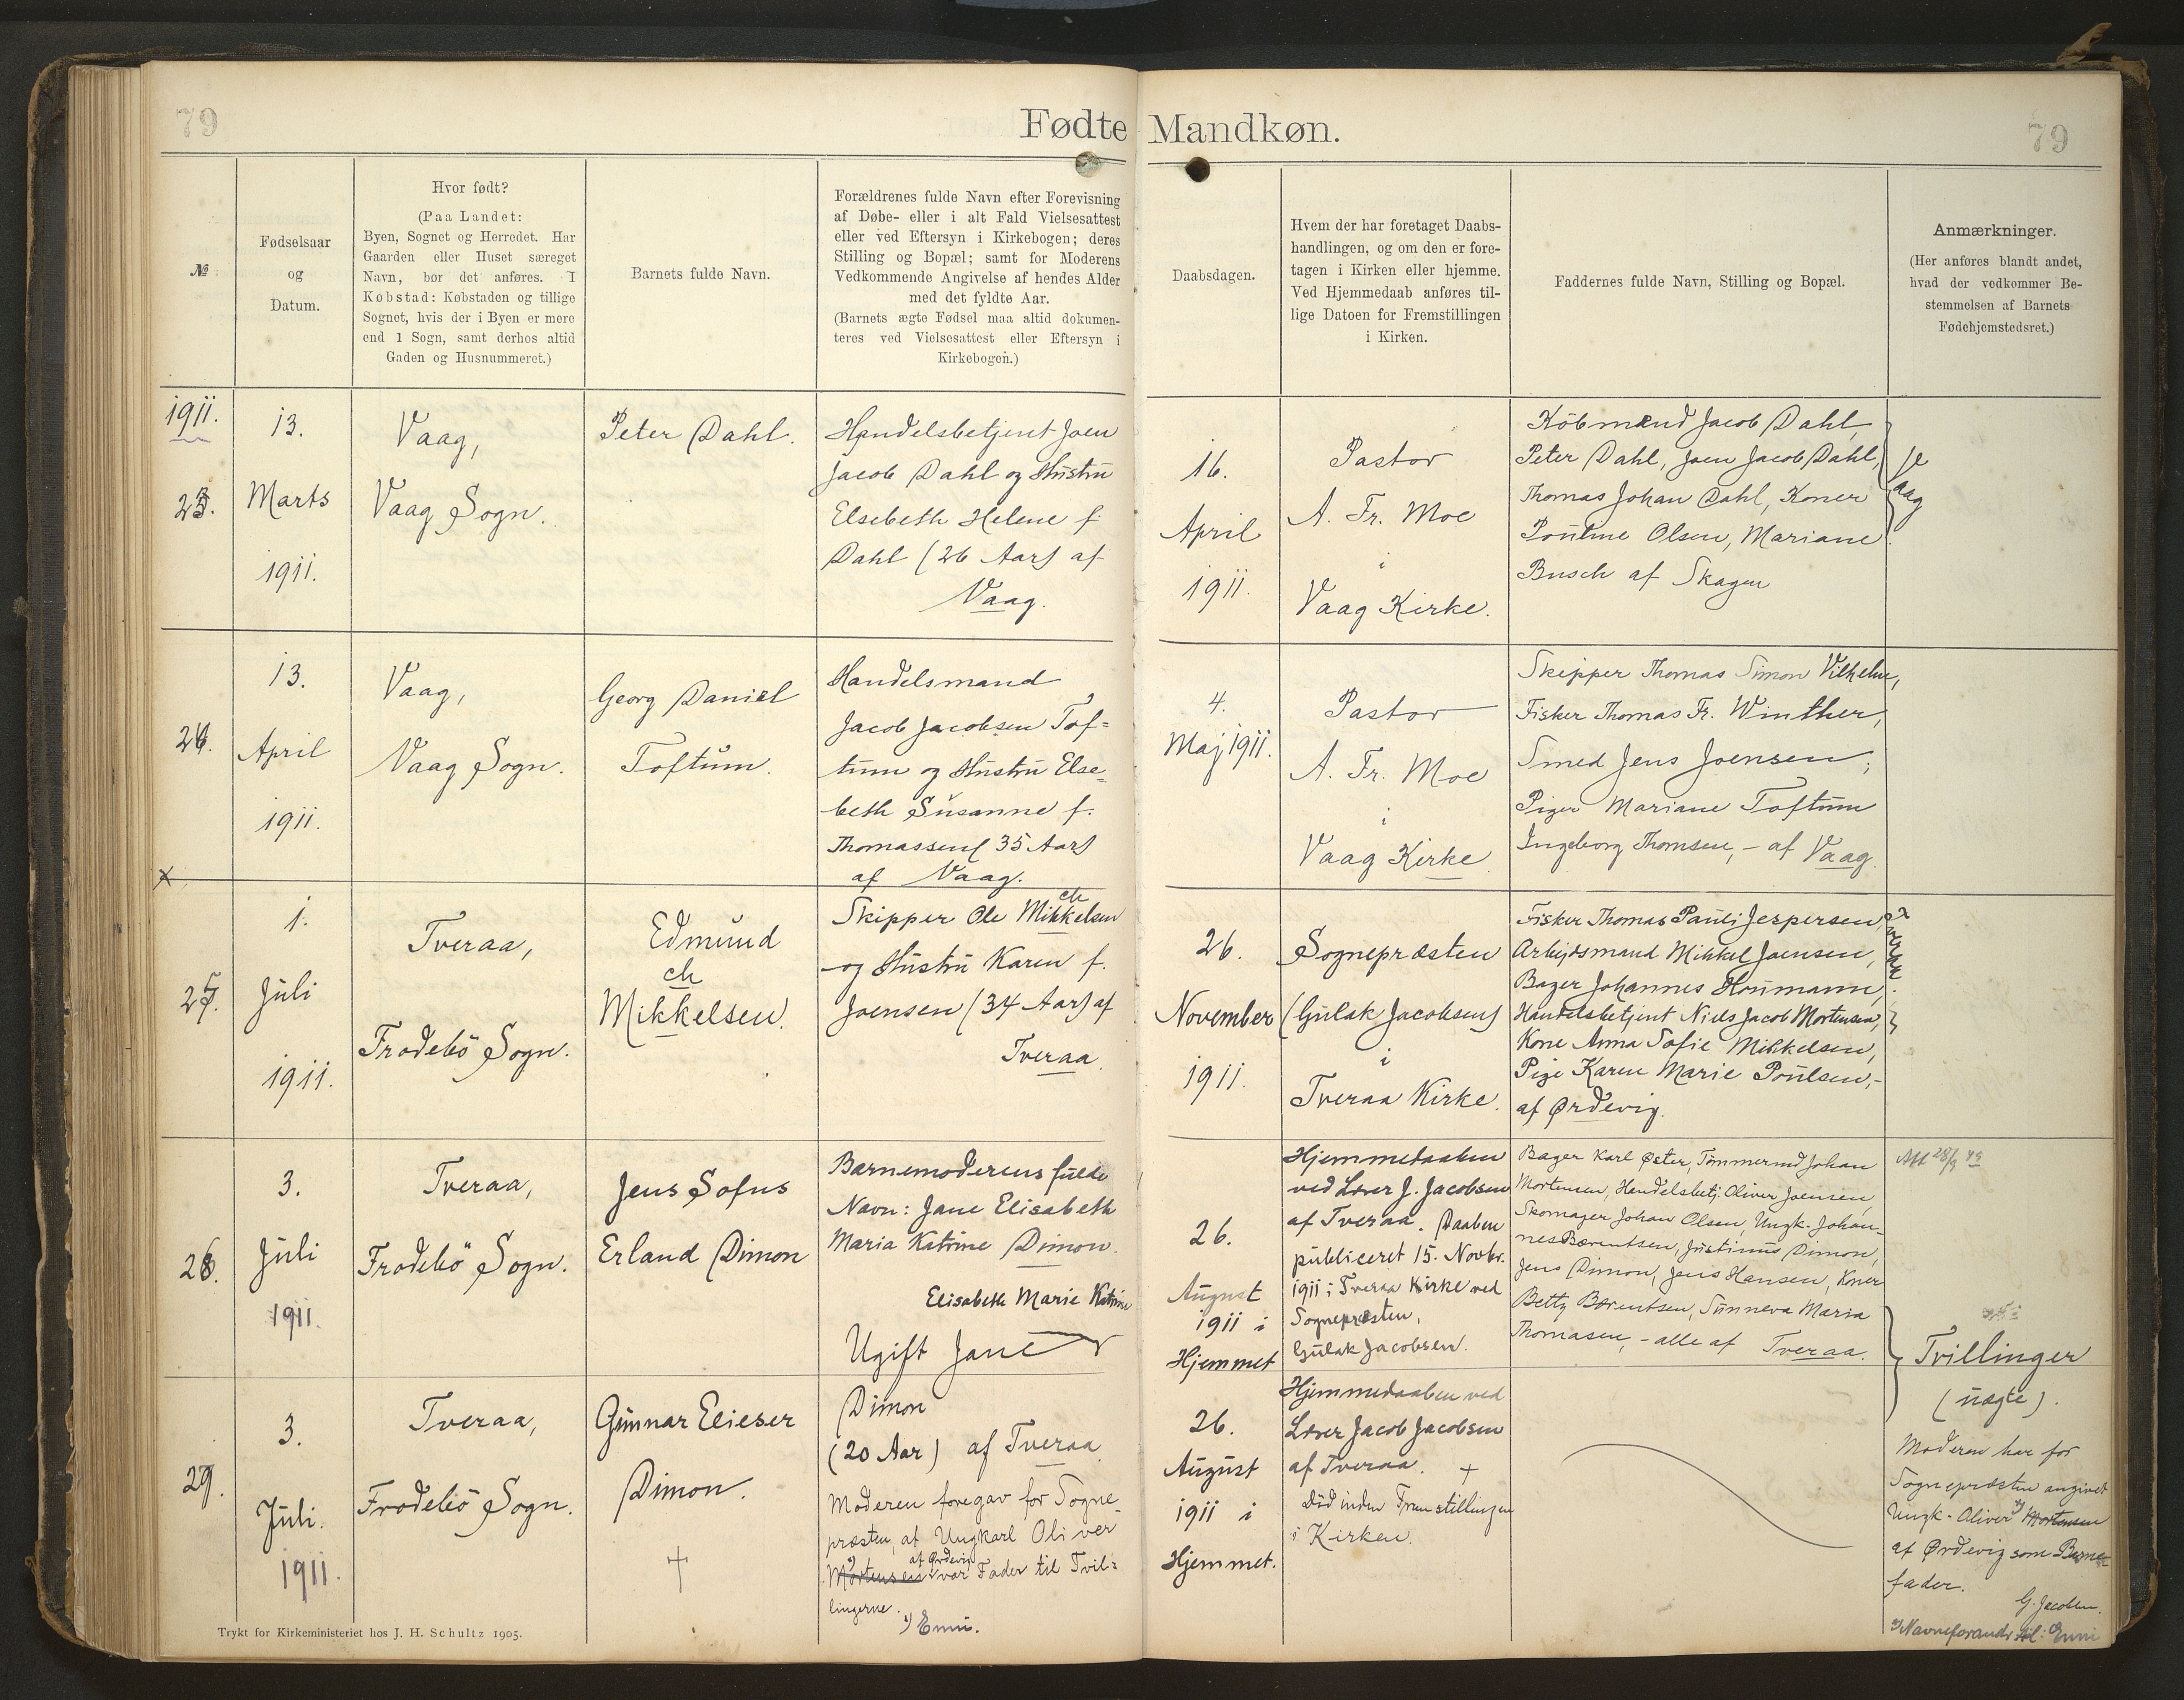 79
Fødte
Mandkøn.
79
№
Fødselsaar
og
Datum.
Hvor født?
(Paa Landet:
Byen, Sognet og Herredet. Har
Gaarden eller Huset særeget
Navn, bør det anføres. I
Købstad: Købstaden og tillige
Sognet, hvis der i Byen er mere
end 1 Sogn, samt derhos altid
Gaden og Husnummeret.)
Barnets fulde Navn.
Forældrenes fulde Navn efter Forevisning
af Døbe- eller i alt Fald Vielsesattest
eller ved Eftersyn i Kirkebogen; deres
Stilling og Bopæl; samt for Moderens
Vedkommende Angivelse af hendes Alder
med det fyldte Aar.
(Barnets ægte Fødsel maa altid dokumen-
teres ved Vielsesattest eller Eftersyn i
Kirkebogen.)
Daabsdagen.
Hvem der har foretaget Daabs-
handlingen, og om den er fore-
tagen i Kirken eller hjemme.
Ved Hjemmedaab anføres til-
lige Datoen for Fremstillingen
i Kirken.
Faddernes fulde Navn, Stilling og Bopæl.
Anmærkninger.
(Her anføres blandt andet,
hvad der vedkommer Be-
stemmelsen af Barnets
Fødehjemstedsret.)
1911.
23.
13.
Marts
1911.
Vaag,
Vaag Sogn.
Peter Dahl.
Handelsbetjent Joen
Jacob Dahl og Hustru
Elsebeth Helene f.
Dahl (26 Aar) af
Vaag.
16.
April
1911.
Pastor
A. Fr. Moe
i
Vaag Kirke.
Købmænd Jacob Dahl,
Peter Dahl, Joen Jacob Dahl,
Thomas Johan Dahl, Koner
Pouline Olsen, Mariane
Busch af Skagen
24.
13.
April
1911.
Vaag,
Vaag Sogn.
Georg Daniel
Toftum.
Handelsmand
Jacob Jacobsen Tof=
tum og Hustru Else=
beth Susanne f.
Thomassen (35 Aar)
af Vaag.
4.
Maj 1911.
Pastor
A. Fr. Moe
i
Vaag Kirke
Skipper Thomas Simon Vilhelm,
Fisker Thomas Fr. Winther,
Smed Jens Joensen;
Piger Mariane Toftum
Ingeborg Thomsen, - af Vaag.
x
1.
27.
Juli
1911.
Tveraa,
Frodebö Sogn.
Edmund
ch
Mikkelsen.
ch
Skipper Ole Mikkelsen
og Hustru Karen f.
Joensen (34 Aar) af
Tveraa.
26.
November
1911.
Sognepræsten
(Gulak Jacobsen)
i
Tveraa Kirke.
Fisker Thomas Pauli Jespersen,
Arbejdsmand Mikkel Joensen,
Bager Johannes Houmann,
Handelsbetjent Niels Jacob Mortensen,
Kone Anna Sofie Mikkelsen,
Pige Karen Marie Poulsen,-
af Ørdevig.
Tveraa.
28.
3.
Juli
1911.
Tveraa,
Frodebö Sogn.
Jens Sofus
Erland Dimon
Barnemoderens fulde
Navn: Jane Elisabeth
Maria Katrine Dimon.
Elisabeth Marie Katrine
Ugift Jane
26.
August
1911 i
Hjemmet
Hjemmedaaben
ved Lærer J. Jacobsen
af Tveraa. Daaben
publiceret 15. Novbr.
1911 i Tveraa Kirke ved
Sognepræsten,
Gulak Jacobsen.
Bager Karl Øster, Tømmermd Johan
Mortensen, Handelsbetj. Oliver Joensen,
Skomager Johan Olsen, Ungk. Johan-
nes Bærentsen, Justinus Dimon,
Jens Dimon, Jens Hansen, Koner
Betty Bærentsen, Sunneva Maria
Thomasen, - alle af Tveraa.
Att 28/9 49
Tvillinger
(uægte).
29.
3.
Juli.
1911.
Tveraa,
Frodebö Sogn.
Gunnar Elieser
Dimon.
†
Dimon
(20 Aar) af Tveraa
Moderen foregav for Sogne-
præsten, at Ungkarl Oliver
af Ørdevig
Mortensen var Fader til Tvil=
lingerne.
1) Enni.
26.
August
1911 i
Hjemmet.
Hjemmedaaben ved
Lærer Jacob Jacobsen
af Tveraa. +
Død inden Fremstillingen
i Kirken.
Moderen har for
Sognepræsten angivet
Ungk. Oliver Mortensen
af Ørdevig som Barne-
fader.
G. Jacobsen.
Navneforandr. til: Enni
Trykt for Kirkeministeriet hos J. H. Schultz 1905.